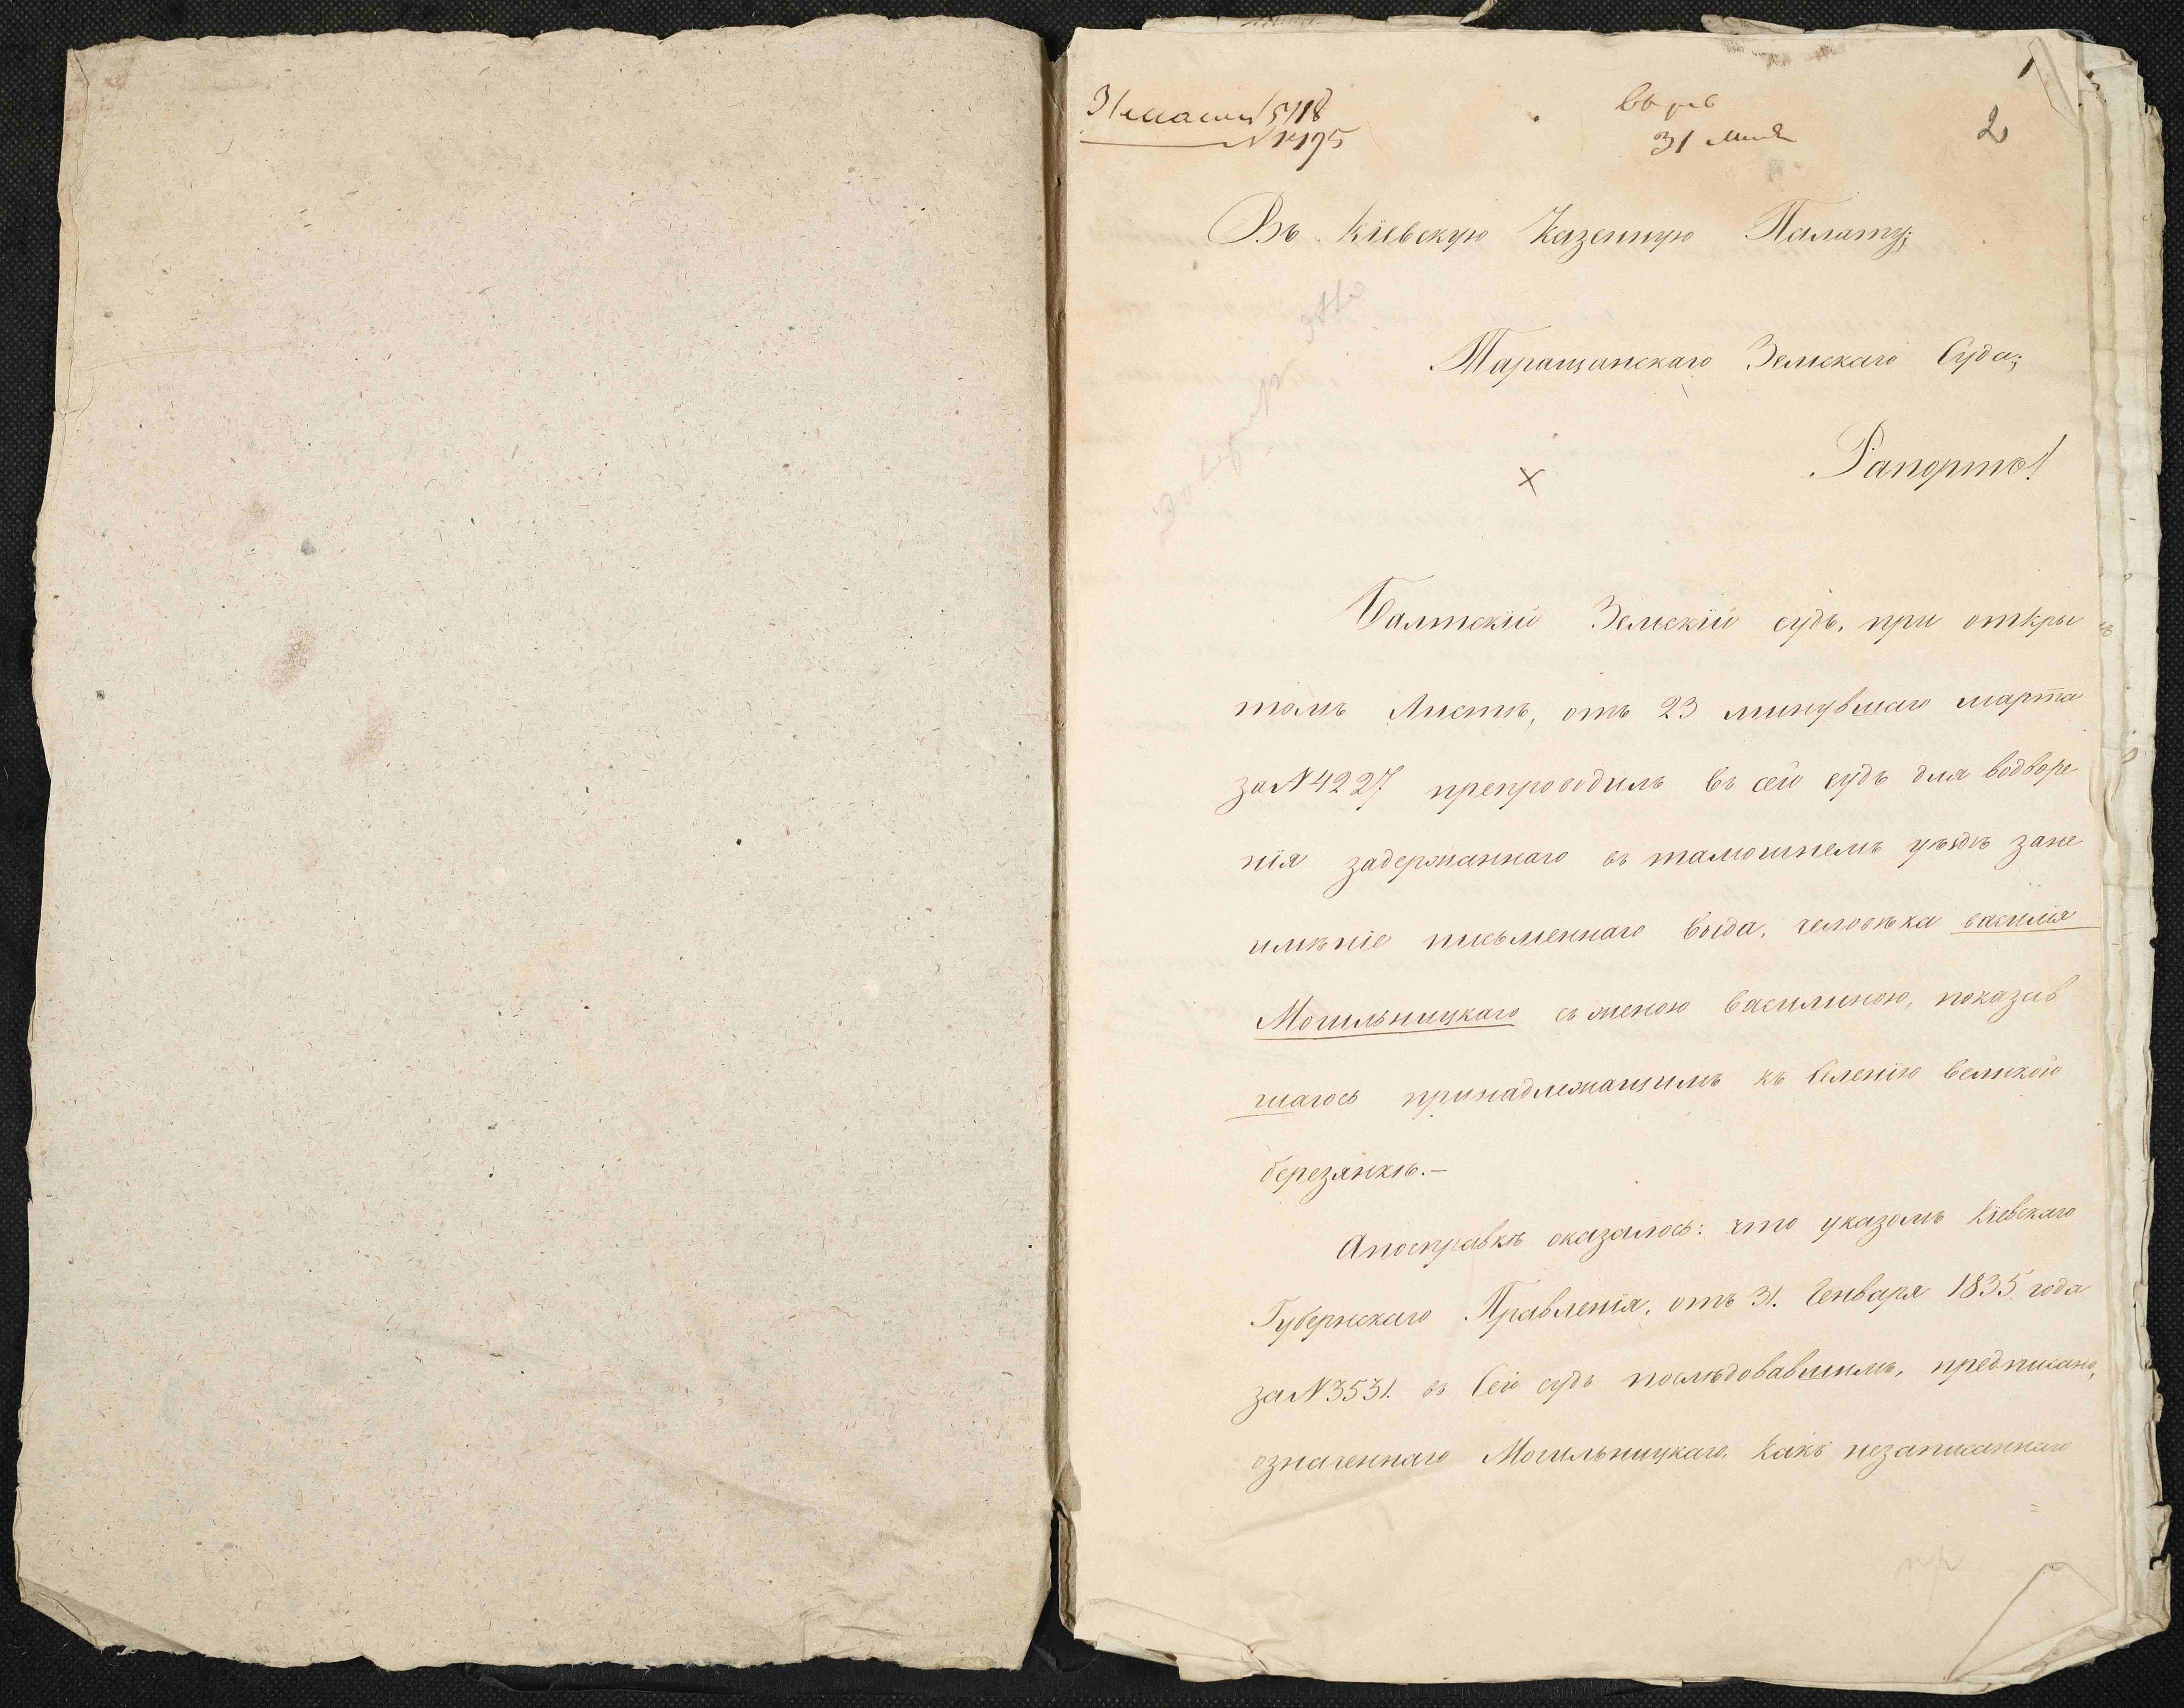 31 мая 5118
N 1495
31 мая
2
1
Въ Кіевскую Казенную Палату;
Таращанскаго Земскаго Суда;
Рапортъ!
Балтскій Земскій судъ, при откры
томъ листѣ, отъ 23 минувшаго марта
за N 4227 препроводилъ въ сей судъ для водворе
нія задержаннаго въ тамошнемъ уѣздѣ зане
имѣніе письменнаго вида, человѣка василія
Могильницкаго съ женою василиною, показав
шагось принадлежащимъ къ селенію великой
березянкѣ.—
Апосправкѣ оказалось: что указомъ Кіевскаго
Губернскаго Правленія, отъ 31. Генваря 1835 года
за N 3531. въ Сей судъ послѣдовавшимъ, предписано,
означеннаго Могильницкаго, какъ незаписаннаго